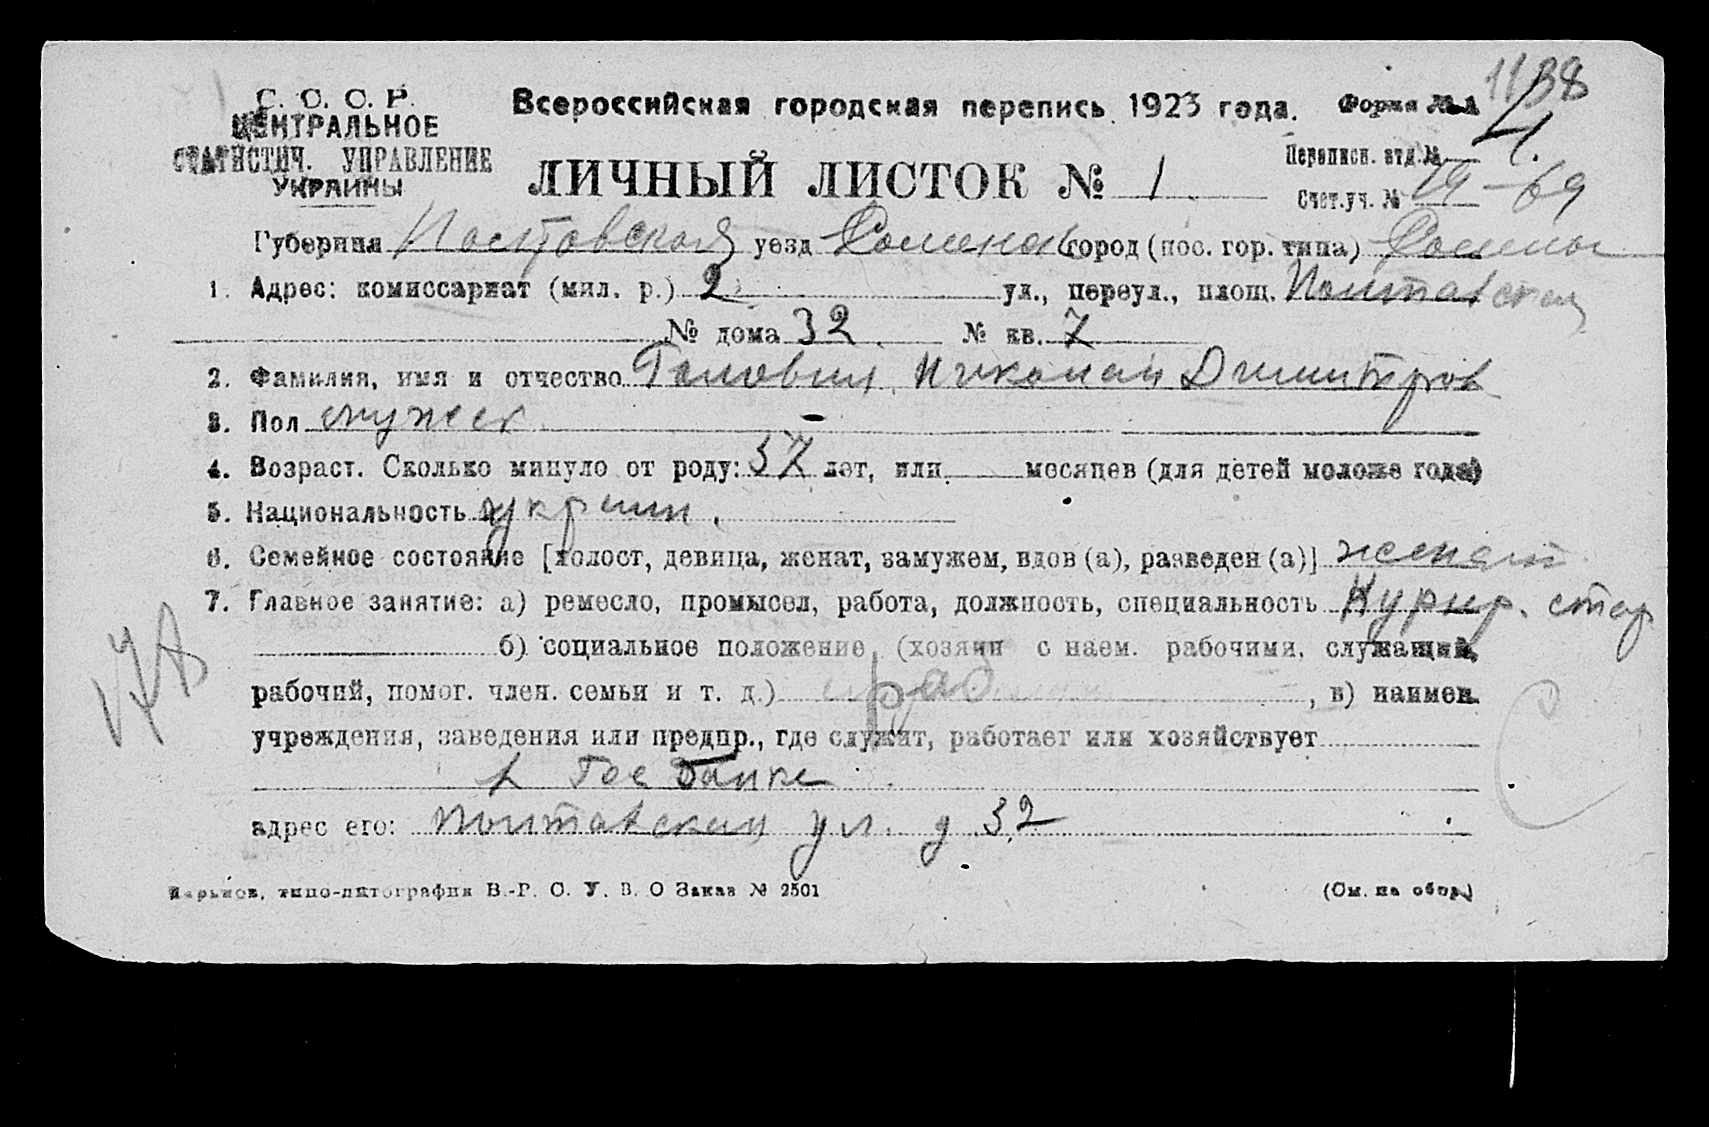 С. С. С. Р.
ЦЕНТРАЛЬНОЕ
СТАТИСТИЧ. УПРАВЛЕНИЕ
УКРАИНЫ
Всероссийская городская перепись 1923 года.
Форма № 1
1138
ЛИЧНЫЙ ЛИСТОК № 1
Переписн. отд. № 4.
Счет.уч. № 19-69
Губерния Полтавская уезд Роменск город (пос. гор. типа) Ромны
1. Адрес: комиссариат (мил. р.) 2 ул., переул., площ. Полтавская
№ дома 32 № кв. 7
2. Фамилия, имя и отчество Николай Димитров
3. Пол мужск -
4. Возраст. Сколько минуло от роду: 37 лет, или месяцев (для детей моложе года)
5. Национальность украин.
6. Семейное состояние [холост, девица, женат, замужем, вдов (а), разведен (а)] женат
7. Главное занятие: а) ремесло, промысел, работа, должность, специальность Курьер. стор
б) социальное положение (хозяин с наем. рабочими, служащий,
рабочий, помог. член. семьи и т. д.) раб , в) наимен.
учреждения, заведения или предпр., где служит, работает или хозяйствует
в Гос Банке
адрес его: Полтавская ул. д 32
Харьков, типо-литография В.-Р. С. У. В. О Заказ № 2501
(См. на обор.)